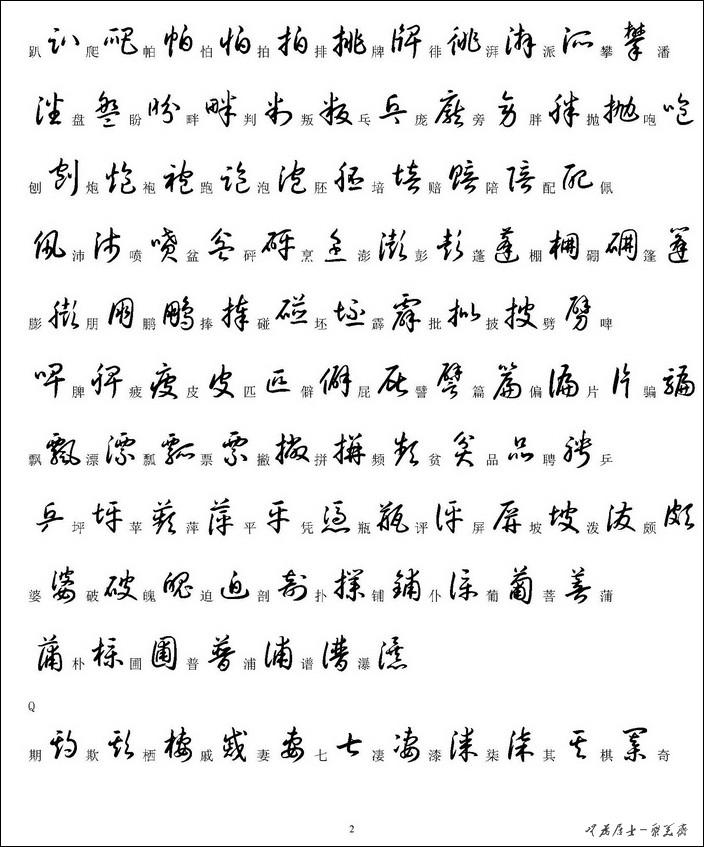 趴 爬 帕 怕 拍 排 牌 徘 湃 派 攀 潘
盘 盼 畔 判 叛 乓 庞 旁 胖 抛 咆
刨 炮 袍 跑 泡 胚 培 赔 陪 配 佩
沛 喷 盆 砰 烹 澎 彭 蓬 棚 硼 篷
膨 朋 鹏 捧 碰 坯 霹 批 披 劈 啤
脾 疲 皮 匹 僻 屁 譬 篇 偏 片 骗
飘 漂 瓢 票 撇 拼 频 贫 品 聘 乒
坪 苹 萍 平 凭 瓶 评 屏 坡 泼 颇
婆 破 魄 迫 剖 扑 铺 仆 葡 菩 蒲
朴 圃 普 浦 谱 瀑
Q
期 欺 栖 戚 妻 七 凄 漆 柒 其 棋 奇
2